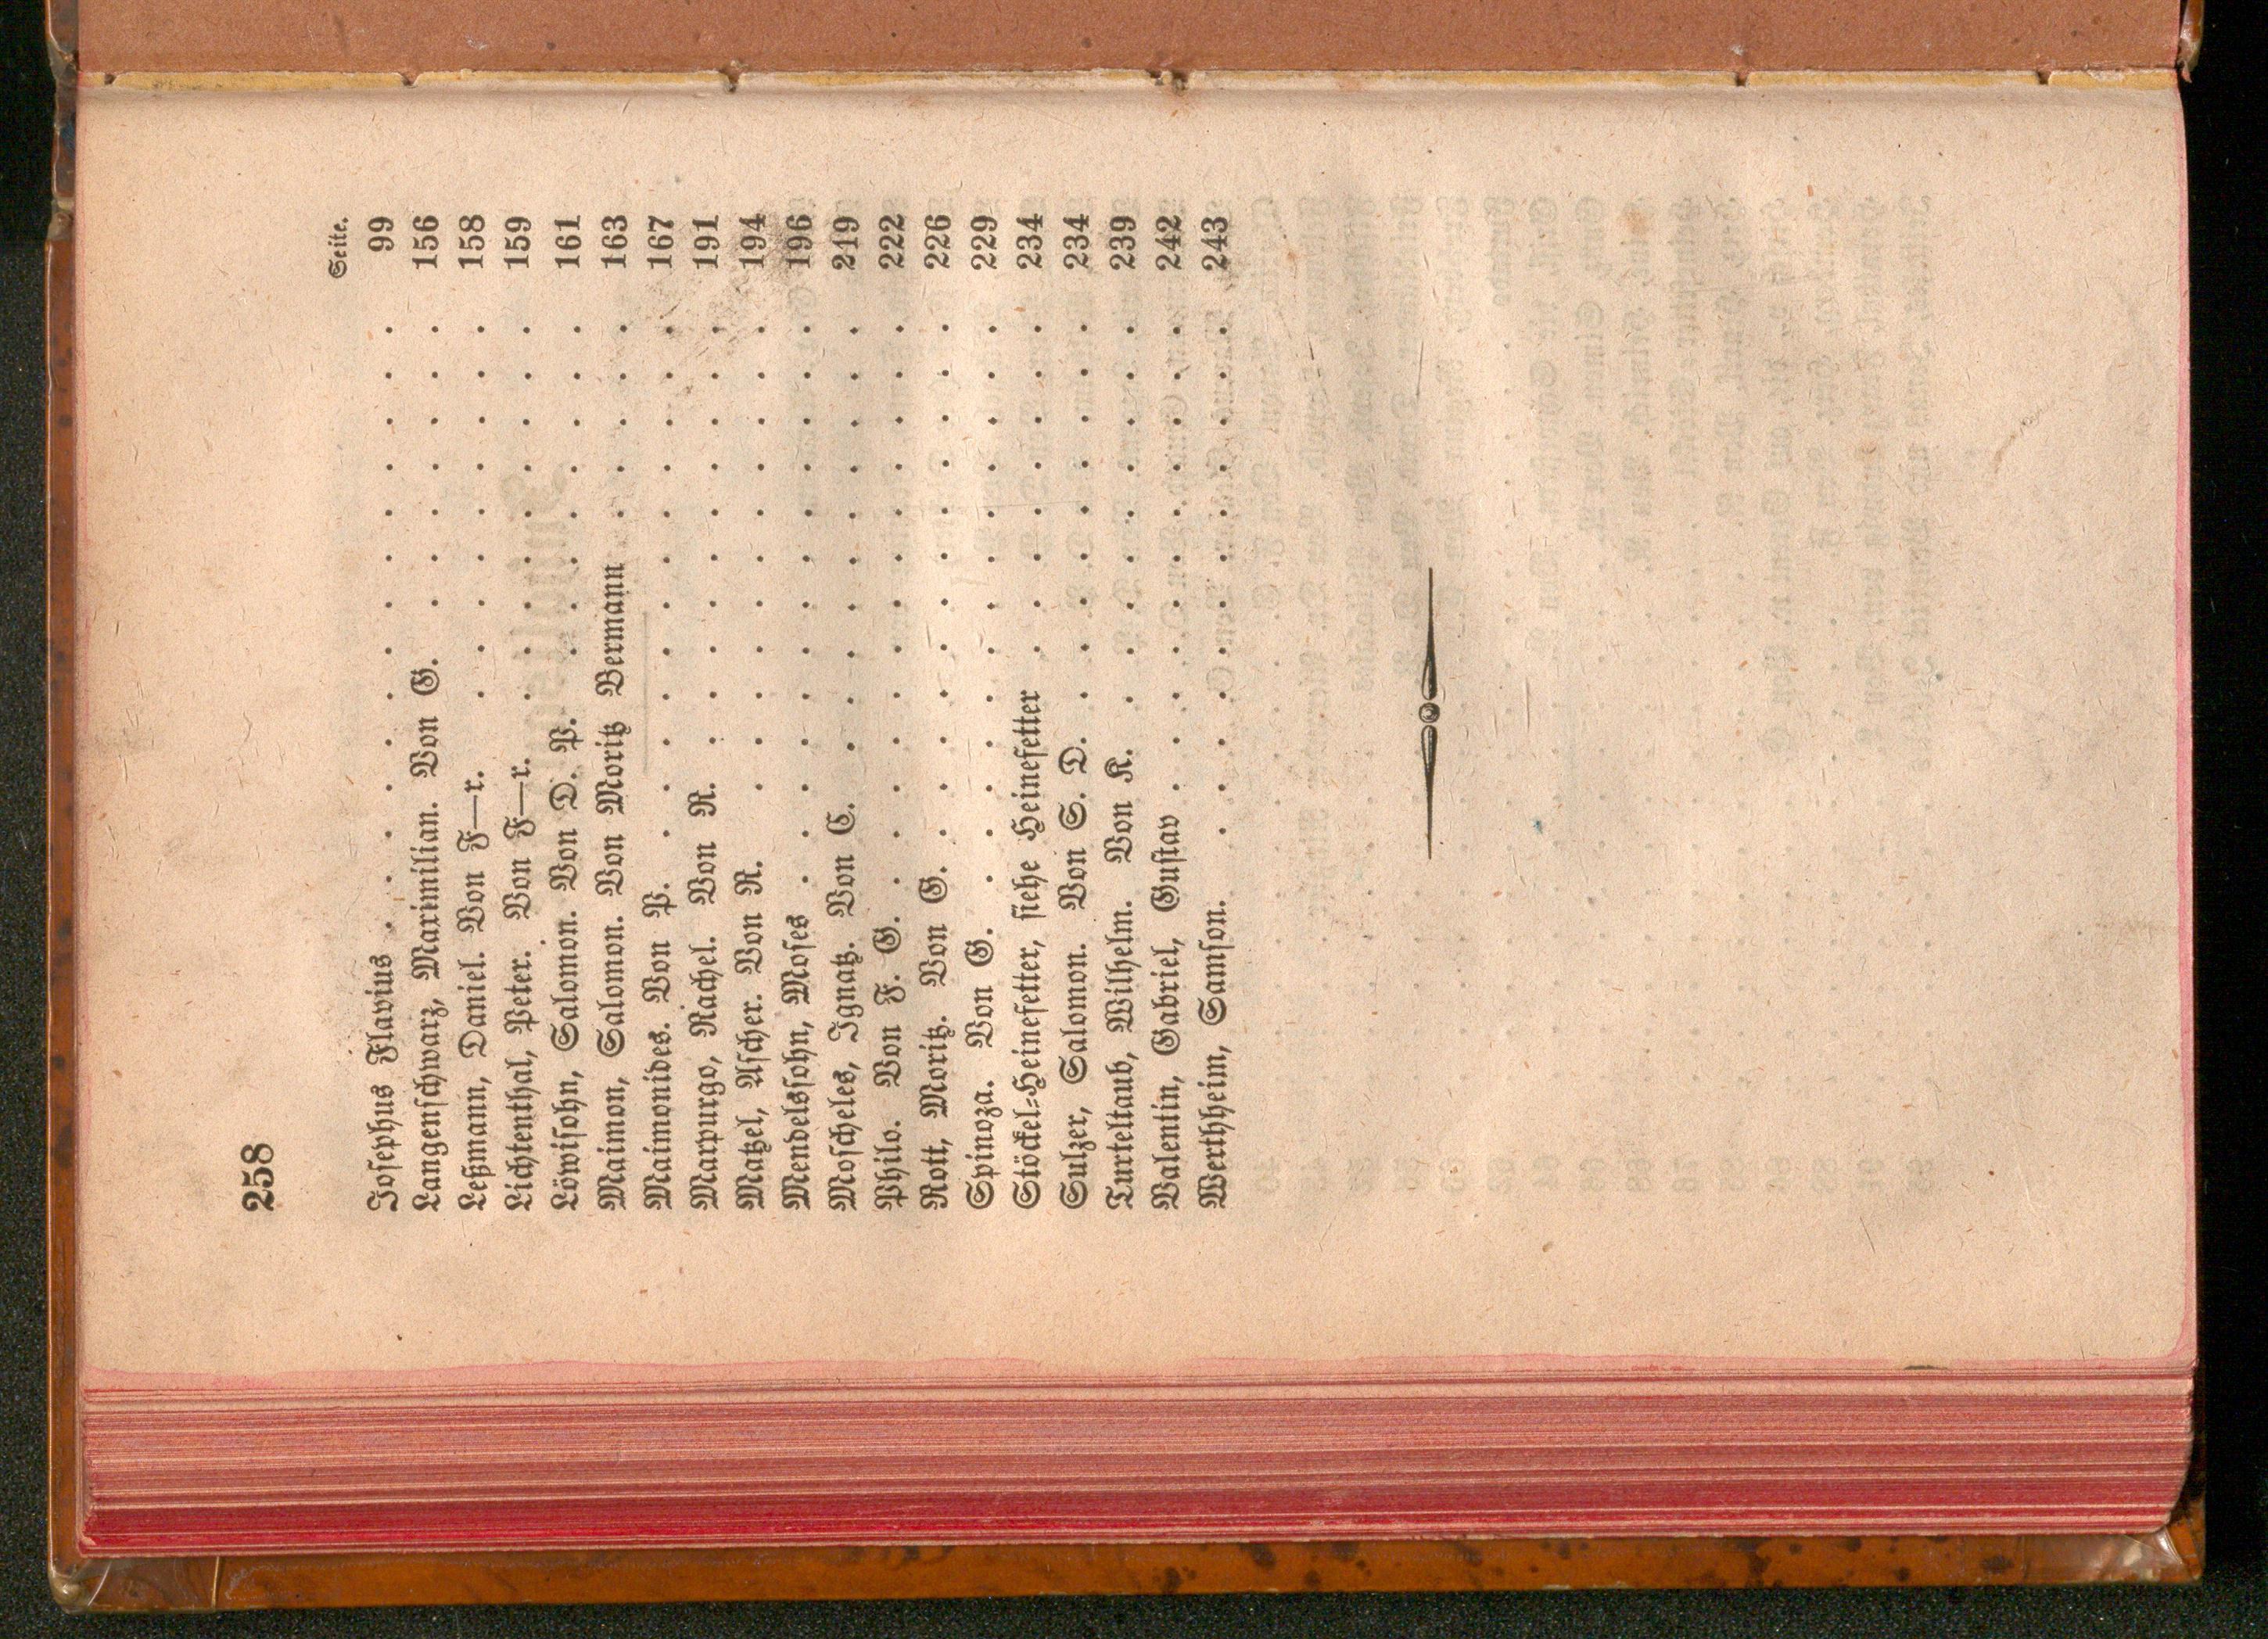 258
Seite.
Josephus Flavius . . . . . . . . . . . . . . 99
Langenschwarz, Maximilian. Von G. . . . . . . . 156
Leßmann, Daniel. Von F—r. . . . . . . . . . 158
Lichtenthal, Peter. Von F—r. . . . . . . . . . 159
Löwisohn, Salomon. Von D. P. . . . . . . . . 161
Maimon, Salomon. Von Moritz Bermann . . . . . 163
Maimonides. Von P. . . . . . . . . . . . . 167
Marpurgo, Rachel. Von R. . . . . . . . . . . 191
Matzel, Ascher. Von R. . . . . . . . . . . . 194
Mendelssohn, Moses . . . . . . . . . . . . . 196
Moscheles, Ignatz. Von C. . . . . . . . . . . 219
Philo. Von F. G. . . . . . . . . . . . . . 222
Rott, Moritz. Von G. . . . . . . . . . . . 226
Spinoza. Von G. . . . . . . . . . . . . . 229
Stöckel-Heinefetter, siehe Heinefetter . . . . . . . . 234
Sulzer, Salomon. Von S. D. . . . . . . . . . . 234
Turteltaub, Wilhelm. Von K. . . . . . . . . . 239
Valentin, Gabriel, Gustav . . . . . . . . . . . 242
Werthheim, Samson. . . . . . . . . . . . . 243